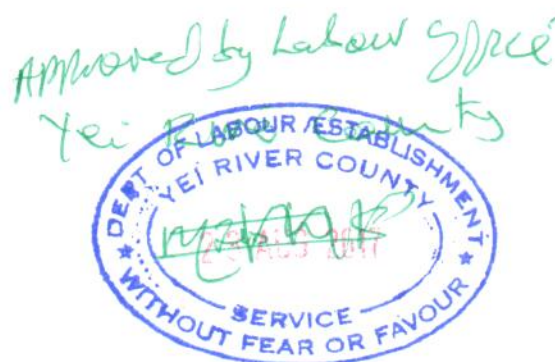 Approved by Labour Office
Yei River County
DEPT OF LABOUR /ESTABLISHMENT
YEI RIVER COUNTY
AUG 2017
SERVICE
WITHOUT FEAR OR FAVOUR